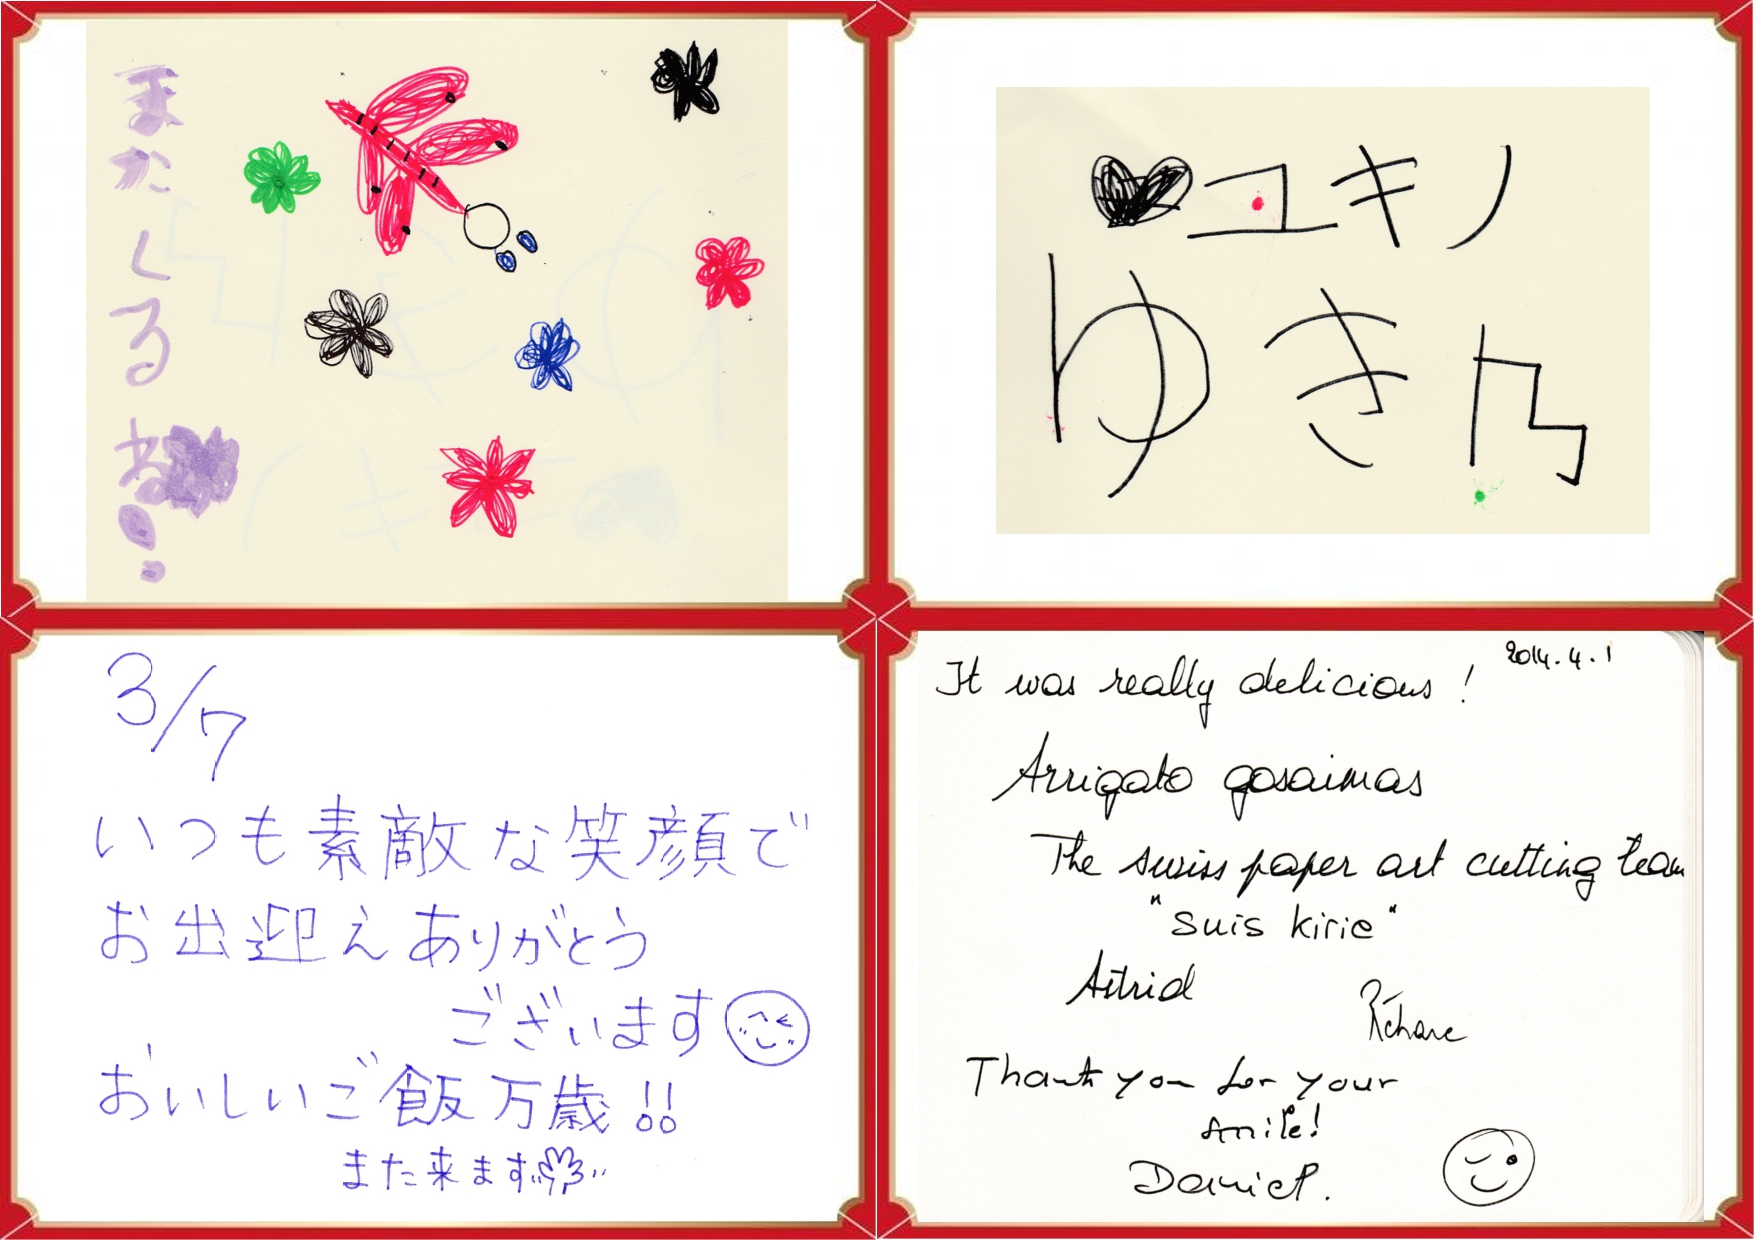 またくるね!
ユキノ
ゆき乃
3/7
いつも素敵な笑顔で
お出迎えありがとう
ございます
おいしいご飯万歳!!
また来ます
2014.4.1
It was really delicious!
Arrigato gosaimas
The swiss paper art cutting team
"Suis kirie"
Astrid
Thank you for your
smile!
Daniel.